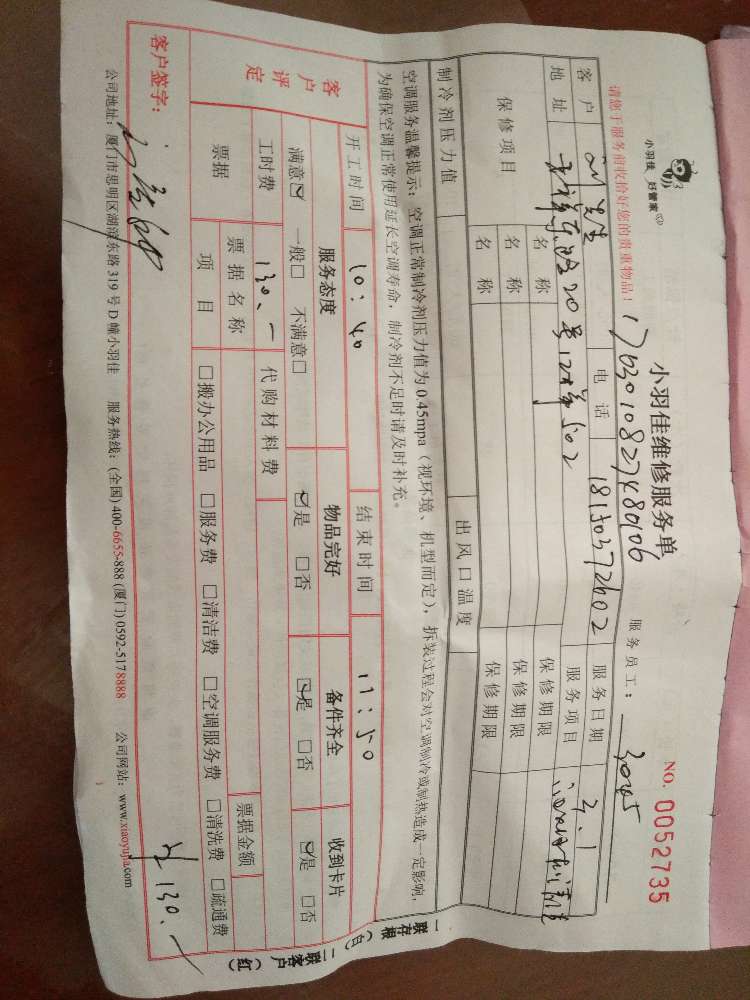 小羽佳 好管家
小羽佳维修服务单
NO. 0052735
请您于服务前收拾好您的贵重物品！
服务员工：
客户 先生 电话 服务日期 3.1
地址 20号 502 服务项目
保修项目 名称 保修期限
名称 保修期限
名称 保修期限
制冷剂压力值 出风口温度
空调服务温馨提示：空调正常制冷剂压力值为0.45mpa（视环境、机型而定），拆装过程会对空调制冷或制热造成一定影响，
为确保空调正常使用延长空调寿命，制冷剂不足时请及时补充。
开工时间 10:40 结束时间 11:50
客户评定 服务态度 物品完好 备件齐全 收到卡片
满意☑ 一般□ 不满意□ ☑是 □否 ☑是 □否 ☑是 □否
工时费 130.- 代购材料费
票据 票据名称 票据金额
项目 □搬办公用品 □服务费 □清洁费 □空调服务费 □清洗费 □疏通费
客户签字：
¥130.-
公司地址：厦门市思明区湖滨东路319号D幢小羽佳 服务热线：(全国) 400-6655-888 (厦门) 0592-5178888 公司网站：www.xiaoyujia.com
一联存根（白） 二联客户（红）